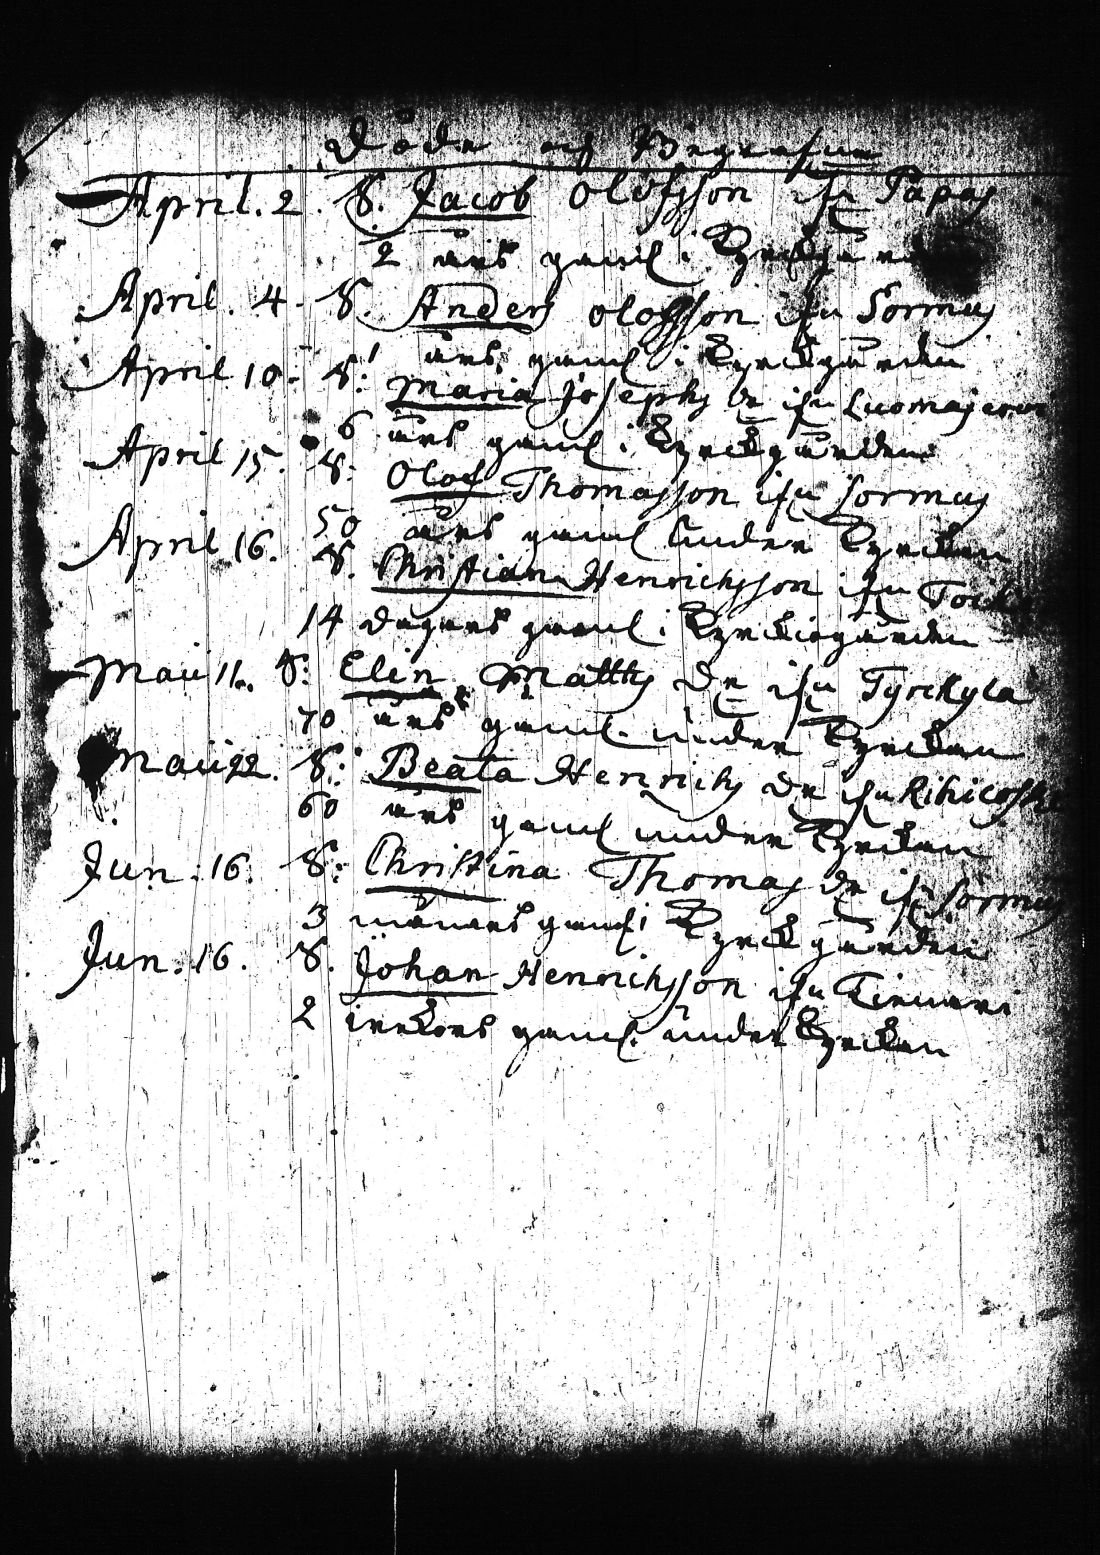 Döde och Begrafne
April. 2. S. Jacob Olofsson ifrån Papas
2 åhrs gamal i Kyrckgården
April. 4. S. Anders Olofsson ifrån Sormus
1 åhrs gamal i Kyrckgården
April 10. S. Maria Josephs Dr ifrån Luomajerwi
6 åhrs gamal i Kyrckgården
April 15. S. Olof Thomasson ifrån Sormus
50 åhrs gamal under Kyrckan
April 16. S. Christian Henrichsson ifrån
14 dagars gamal i Kyrckiogården
Maii 11. S. Elin Matths Dr ifrån Tyrckylä
70 åhrs gamal under Kyrckan
Maii 22. S. Beata Henrichs Dr ifrån Rihicoski
60 åhrs gamal under Kyrckan
Jun. 16. S. Christina Thomas Dr ifrån Sormus
3 månars gamal i Kyrckgården
Jun. 16. S. Johan Henrichsson ifrån
2 weckors gamal. under Kyrckan